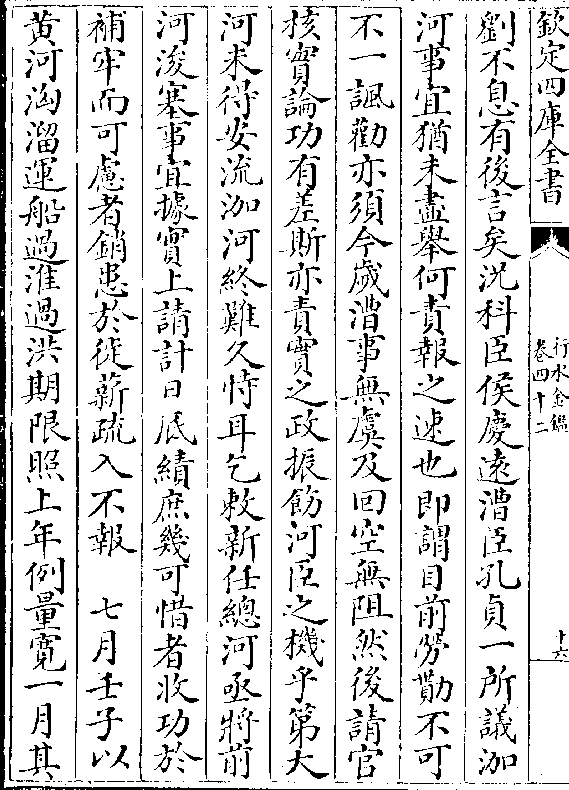 欽定四庫全書
行水金鑑
卷四十二
十六
劉不息有後言矣況科臣侯慶遠漕臣孔貞一所議泇
河事宜猶未盡舉何責報之速也即謂目前勞勩不可
不一諷勸亦須今歲漕事無虞及回空無阻然後請官
核實論功有差斯亦責實之政振飭河臣之機乎第大
河未得安流泇河終難久恃耳乞敕新任總河亟將前
河浚塞事宜據實上請計日底績庶幾可惜者收功於
補牢而可慮者銷患於徙薪疏入不報　七月壬子以
黄河沟溜運船過淮過洪期限照上年例量寛一月其